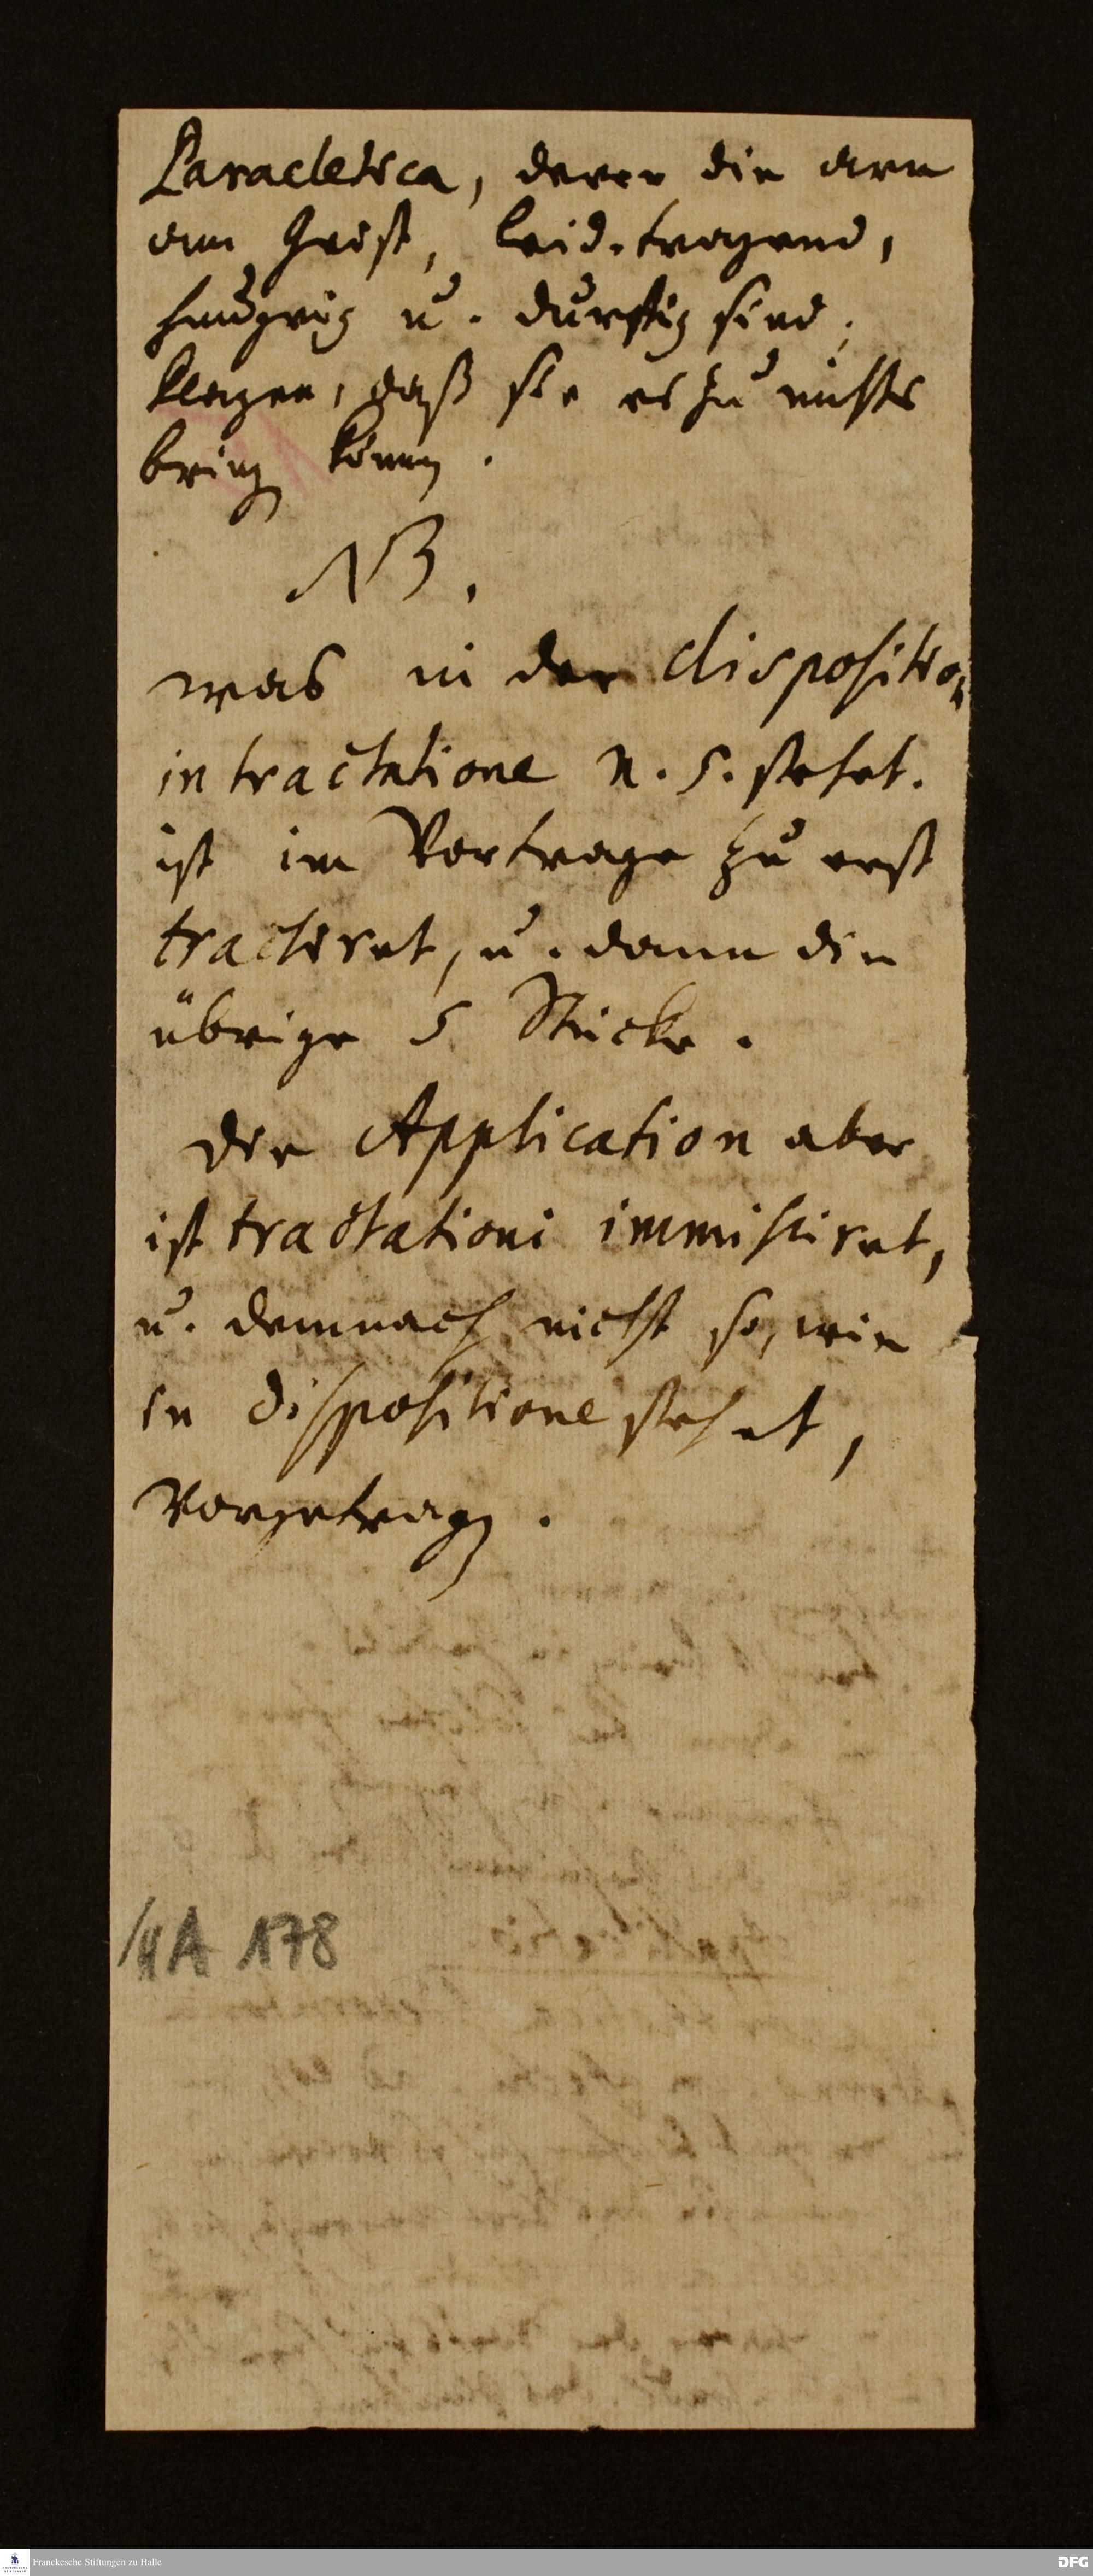 Paracletica, derer die arm
am Geist, leid-tragend,
hungrig u. durstig sind,
klagen, daß sie es zu nichts
bring können.
NB.
was in der disposition
in tractatione n. 5. stehet.
ist im Vortrage zu erst
tractiret, u. dann die
übrige 5 Stücke.
Die Application aber
ist tractationi immisciret,
u. demnach nicht so, wie
in dispositione stehet,
Vorgetragen.
/4A 178
Franckesche Stiftungen zu Halle
DFG